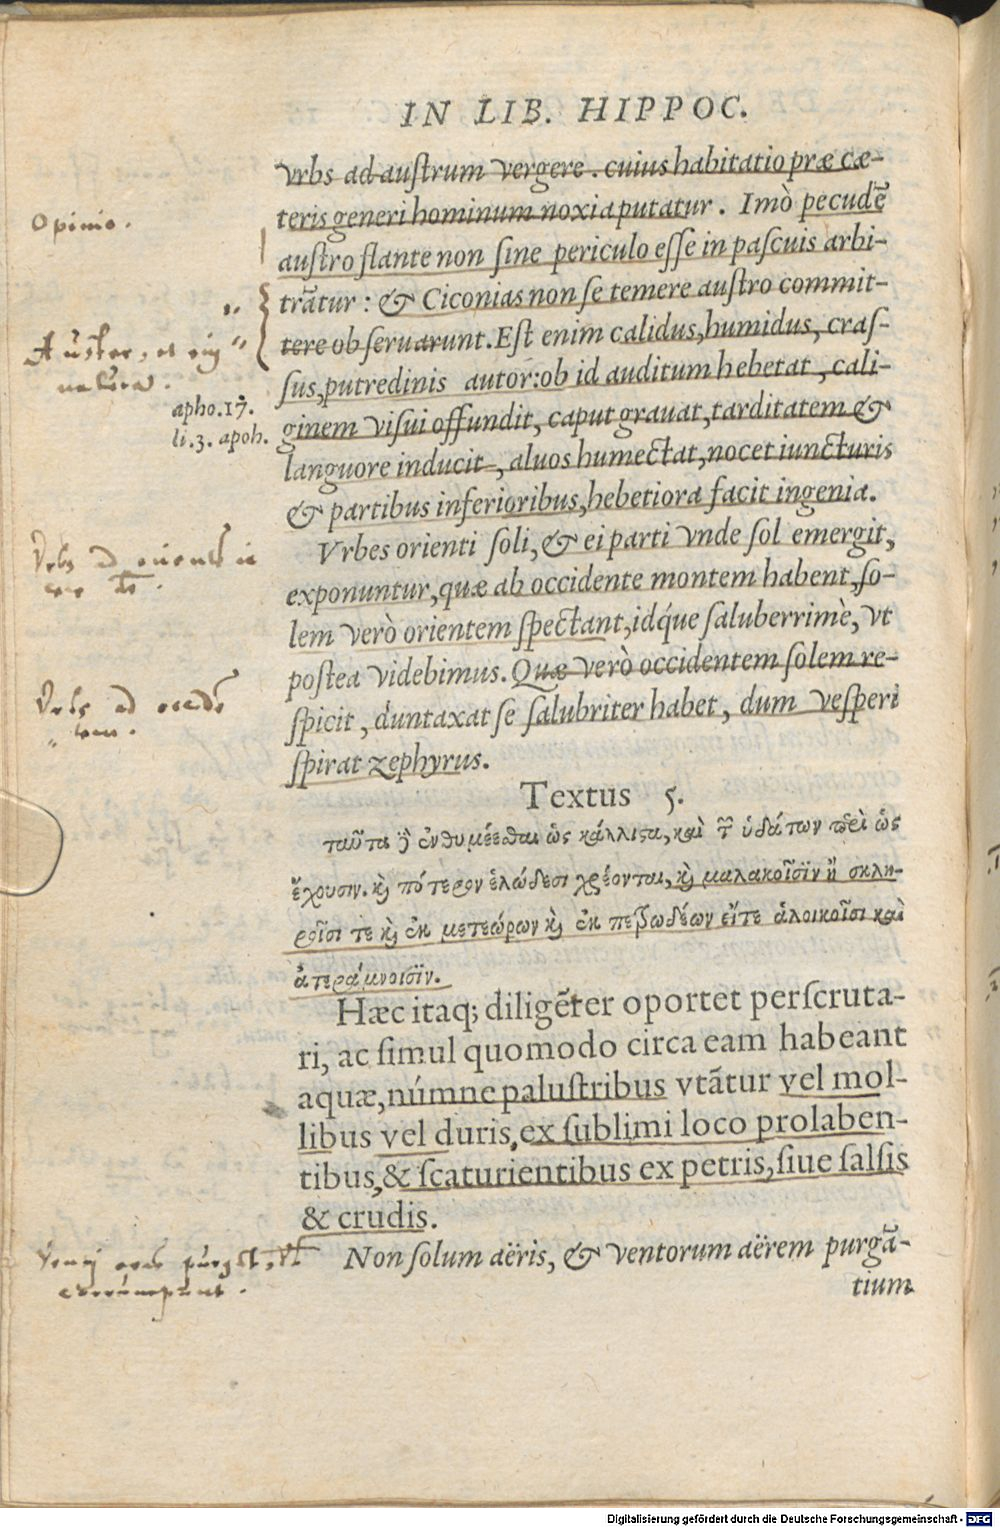 IN LIB. HIPPOC.
vrbs ad austrum vergere. cuius habitatio præ cæ-
teris generi hominum noxia putatur. Imò pecudẽ
austro flante non sine periculo esse in pascuis arbi-
trãtur: & Ciconias non se temere austro commit-
tere obseruarunt. Est enim calidus, humidus, cras-
sus, putredinis autor: ob id auditum hebetat, cali-
ginem visui offundit, caput grauat, tarditatem &
languore inducit, aluos humectat, nocet iuncturis
& partibus inferioribus, hebetiora facit ingenia.
Vrbes orienti soli, & ei parti vnde sol emergit,
exponuntur, quæ ab occidente montem habent, so-
lem verò orientem spectant, idq́ue saluberrimè, vt
postea videbimus. Quæ verò occidentem solem re-
spicit, duntaxat se salubriter habet, dum vesperi
spirat zephyrus.
Opinio.
Auster, et eius
natura.
apho. 17.
li. 3. apoh.
Vrbs ad
Vrbs ad occidẽ
tem.
Textus 5.
ταῦτα δὲ ἐνθυμέεσθαι ὡς κάλλιστα, καὶ τῶν ὑδάτων πέρι ὡς
ἔχουσιν. καὶ πότερον ἑλώδεσι χρέονται, καὶ μαλακοῖσϊν ἢ σκλη-
ροῖσί τε καὶ ἐκ μετεώρων καὶ ἐκ πετρωδέων εἴτε ἁλοικοῖσι καὶ
ἀτεράμνοισϊν.
Hæc itaq; diligẽter oportet perscruta-
ri, ac simul quomodo circa eam habeant
aquæ, númne palustribus vtãtur vel mol-
libus vel duris, ex sublimi loco prolaben-
tibus, & scaturientibus ex petris, siue salsis
& crudis.
Non solum aëris, & ventorum aërem purgã-
tium